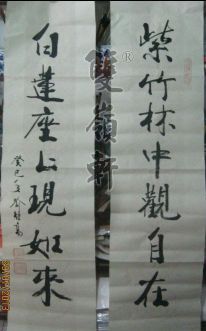 紫竹林中觀自在
白蓮座上現如來
癸巳年
雙嶺軒®